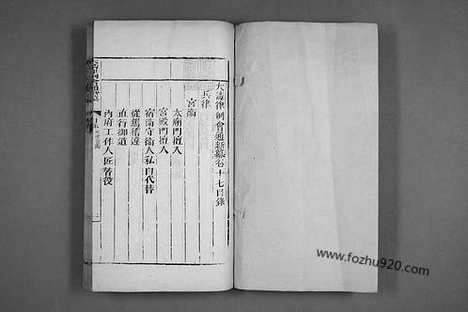 大清律例會通新纂卷十七目錄
兵律
宮衛
太廟門擅入
宮殿門擅入
宿衛守衛人私自代替
從駕稽違
直行御道
內府工作人匠替役
www.fozhu920.com